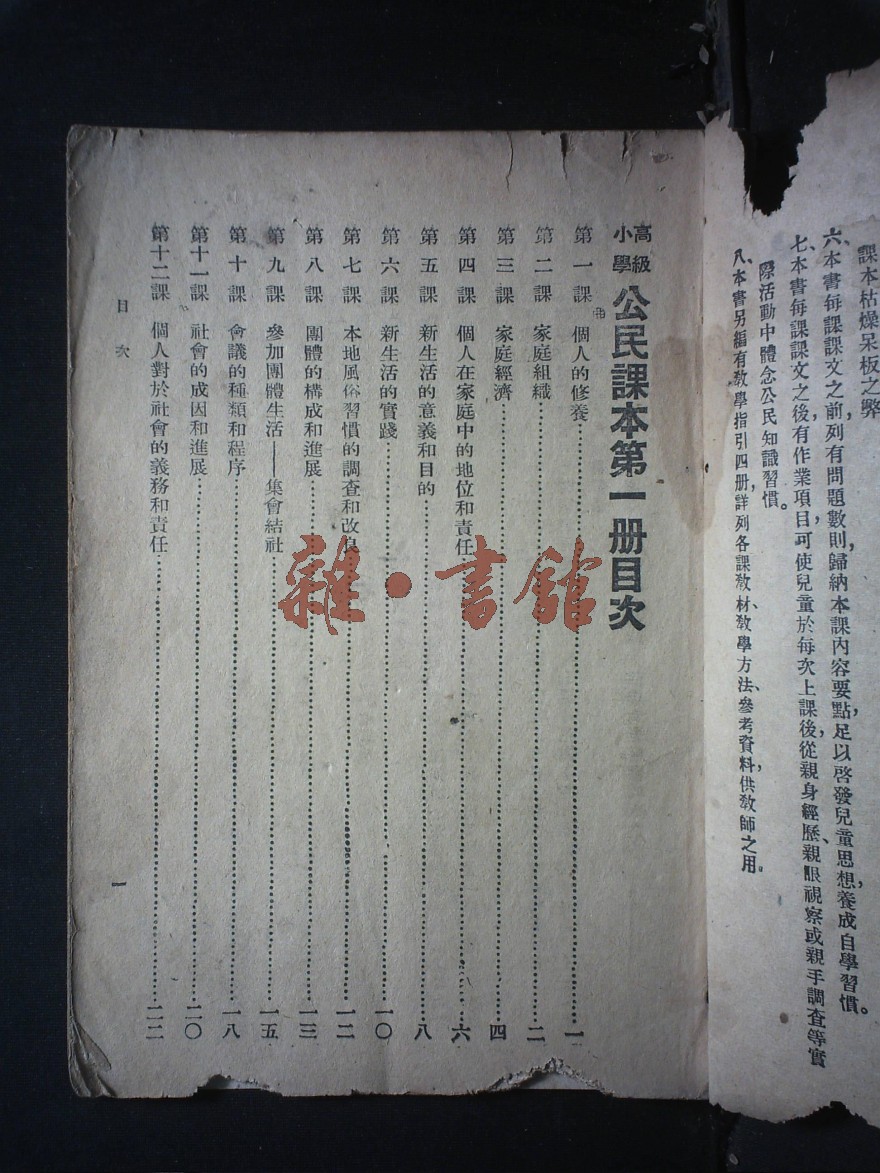 課本枯燥呆板之弊
六、本書每課課文之前,列有問題數則,歸納本課內容要點,足以啓發兒童思想,養成自學習慣。
七、本書每課課文之後,有作業項目,可使兒童於每次上課後,從親身經歷、親眼視察或親手調查等實
際活動中體念公民知識習慣。
八、本書另編有教學指引四册,詳列各課教材、教學方法、參考資料,供教師之用。
高級小學 公民課本第一册目次
第一課 個人的修養 一
第二課 家庭組織 二
第三課 家庭經濟 四
第四課 個人在家庭中的地位和責任 六
第五課 新生活的意義和目的 八
第六課 新生活的實踐 一〇
第七課 本地風俗習慣的調查和改良 一二
第八課 團體的構成和進展 一三
第九課 參加團體生活——集會結社 一五
第十課 會議的種類和程序 一八
第十一課 社會的成因和進展 二〇
第十二課 個人對於社會的義務和責任 二二
目次
一
雜·書館